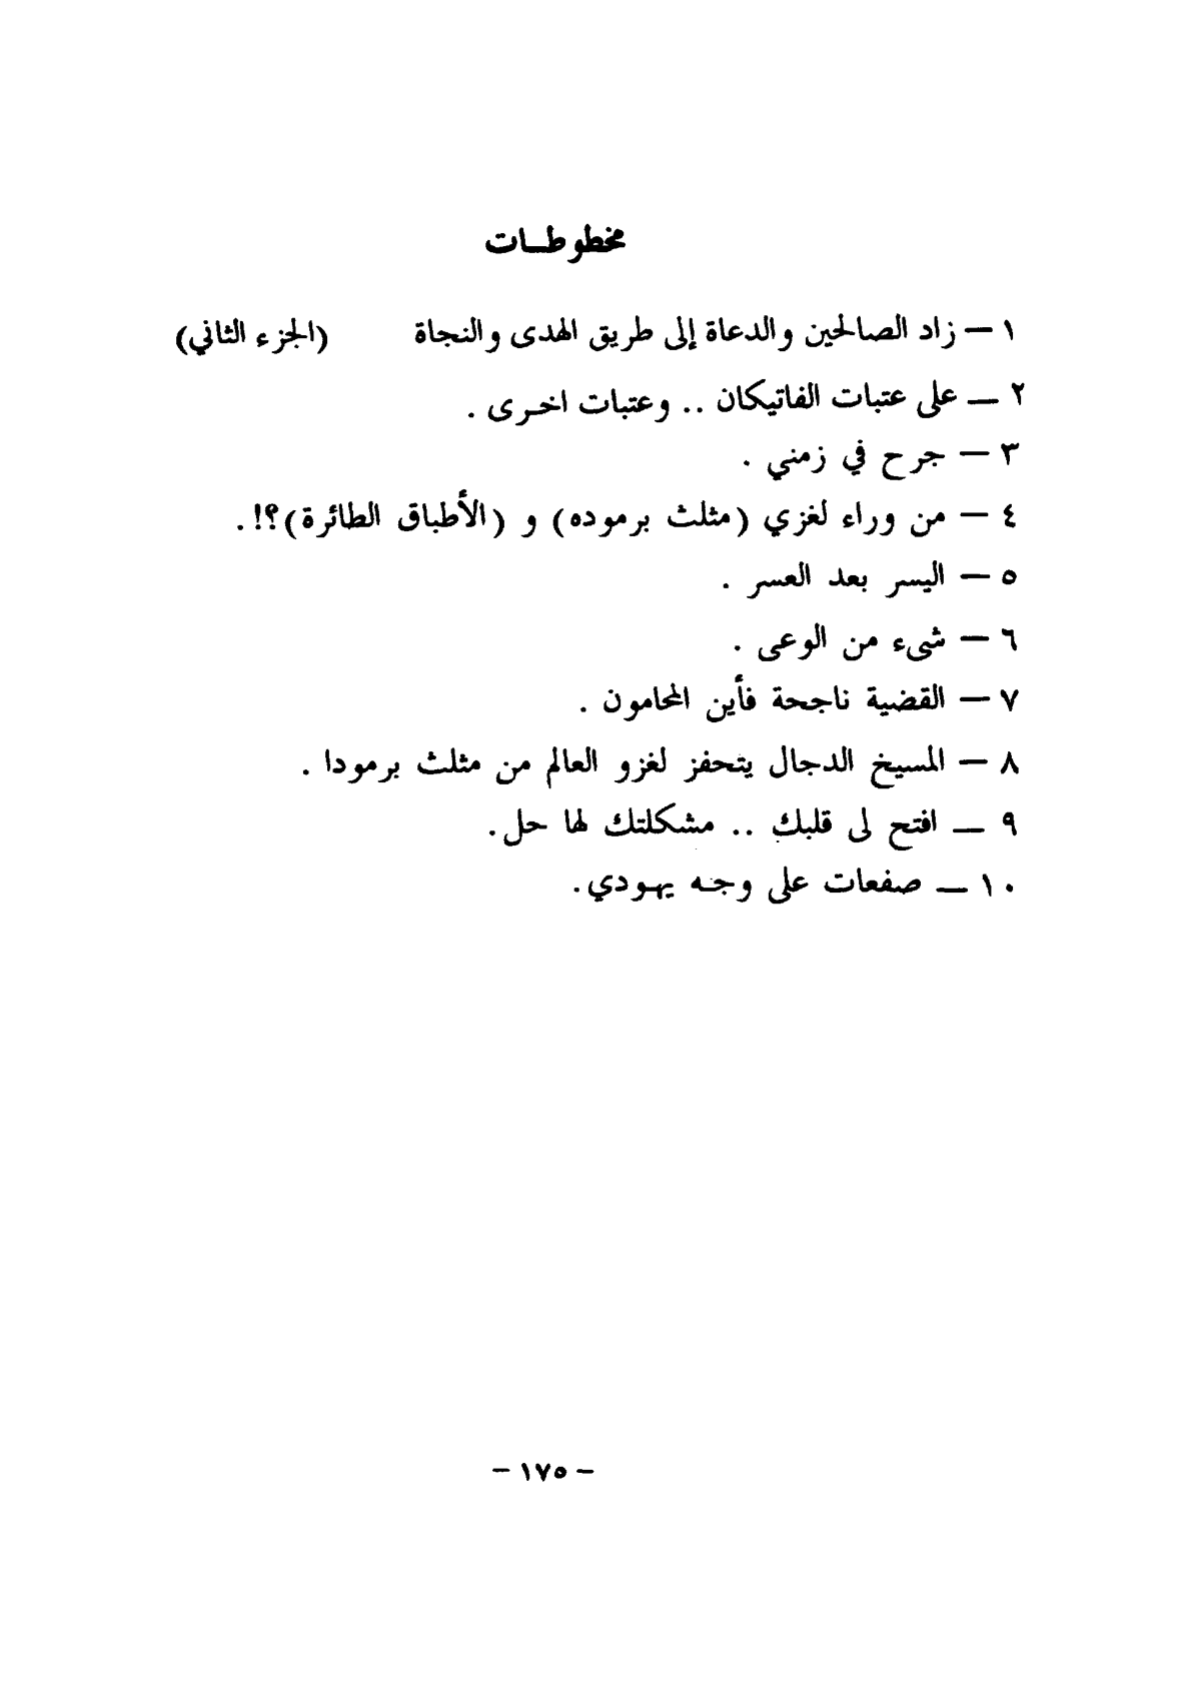 مخطوطـات
١ — زاد الصالحين والدعاة إلى طريق الهدى والنجاة (الجزء الثاني)
٢ — على عتبات الفاتيكان .. وعتبات اخـرى .
٣ — جرح في زمني .
٤ — من وراء لغزي (مثلث برموده) و (الأطباق الطائرة)؟! .
٥ — اليسر بعد العسر .
٦ — شىء من الوعى .
٧ — القضية ناجحة فأين المحامون .
٨ — المسيخ الدجال يتحفز لغزو العالم من مثلث برمودا .
٩ — افتح لى قلبك .. مشكلتك لها حل.
١٠ — صفعات على وجـه يهـودي.
- ١٧٥ -